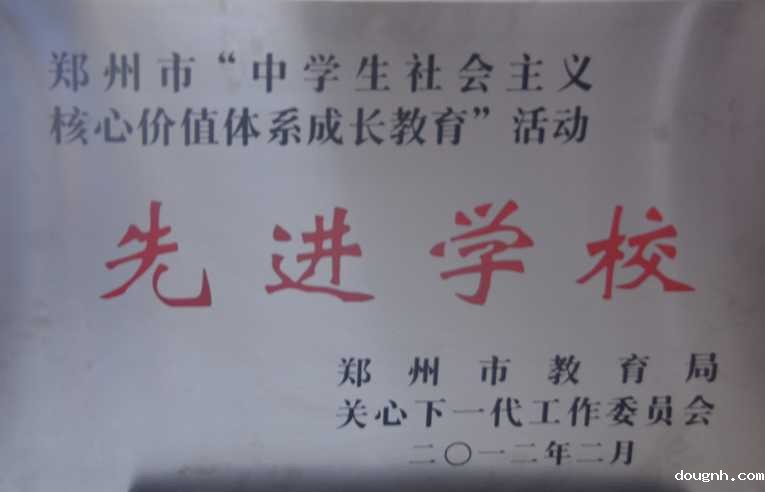 郑州市“中学生社会主义
核心价值体系成长教育”活动
先进学校
郑州市教育局
关心下一代工作委员会
二〇一二年二月
dougnh.com